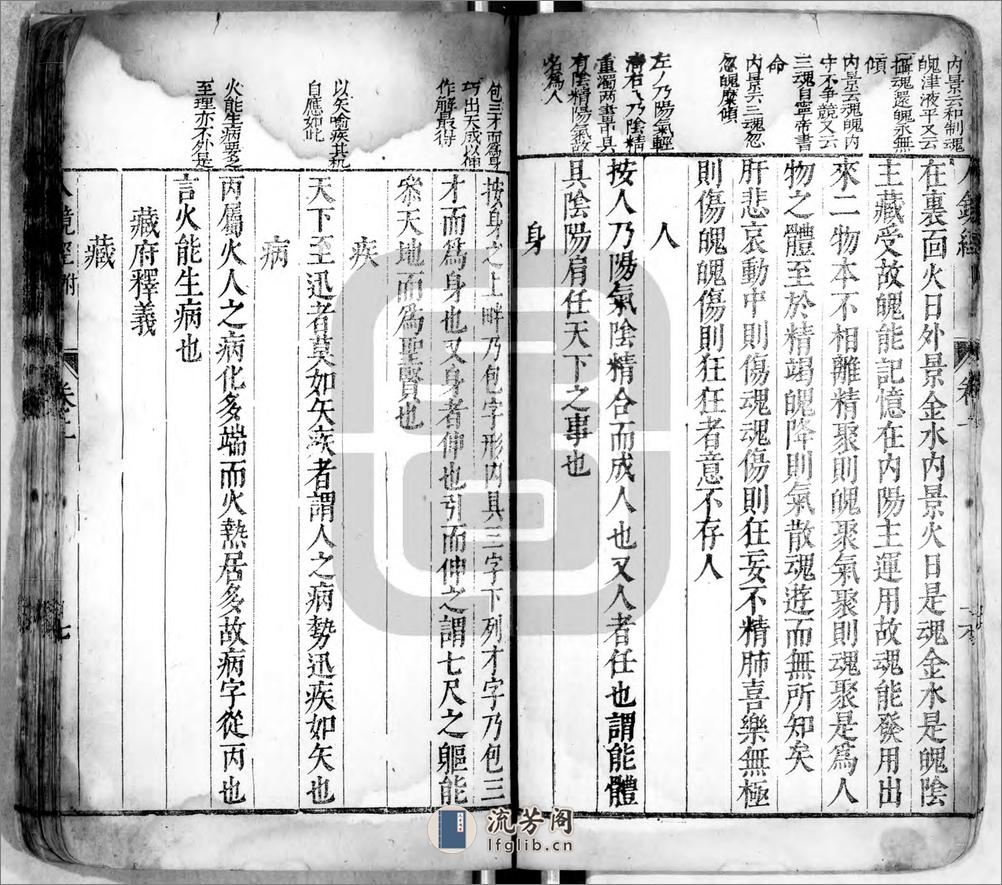 內景云和制魂
魄津液平又云
攝魂還魄永無
傾
內景云魂魄內
守不爭競又云
三魂自寧帝書
命
內景云三魂忽
忽魄糜傾
在裏面火日外景金水內景火日是魂金水是魄陰
主藏受故魄能記憶在內陽主運用故魂能發用出
來二物本不相離精聚則魄聚氣聚則魂聚是爲人
物之體至於精竭魄降則氣散魂遊而無所知矣
肝悲哀動中則傷魂魂傷則狂妄不精肺喜樂無極
則傷魄魄傷則狂狂者意不存人
人
左丿乃陽氣輕
清右乀乃陰精
重濁两畫中具
有陰精陽氣故
名爲人
按人乃陽氣陰精合而成人也又人者任也謂能體
具陰陽肩任天下之事也
身
包三才而爲身
巧出天成以伸
作解最得
按身之上畔乃包字形內具三字下列才字乃包三
才而爲身也又身者伸也引而伸之謂七尺之軀能
叅天地而爲聖賢也
疾
以矢喻疾其机
自應如此
天下至迅者莫如矢疾者謂人之病勢迅疾如矢也
病
火能生病要之
至理亦不外是
丙屬火人之病化多端而火熱居多故病字從丙也
言火能生病也
藏府釋義
藏
人鏡經附
卷之一
七
流芳阁
lfglib.cn